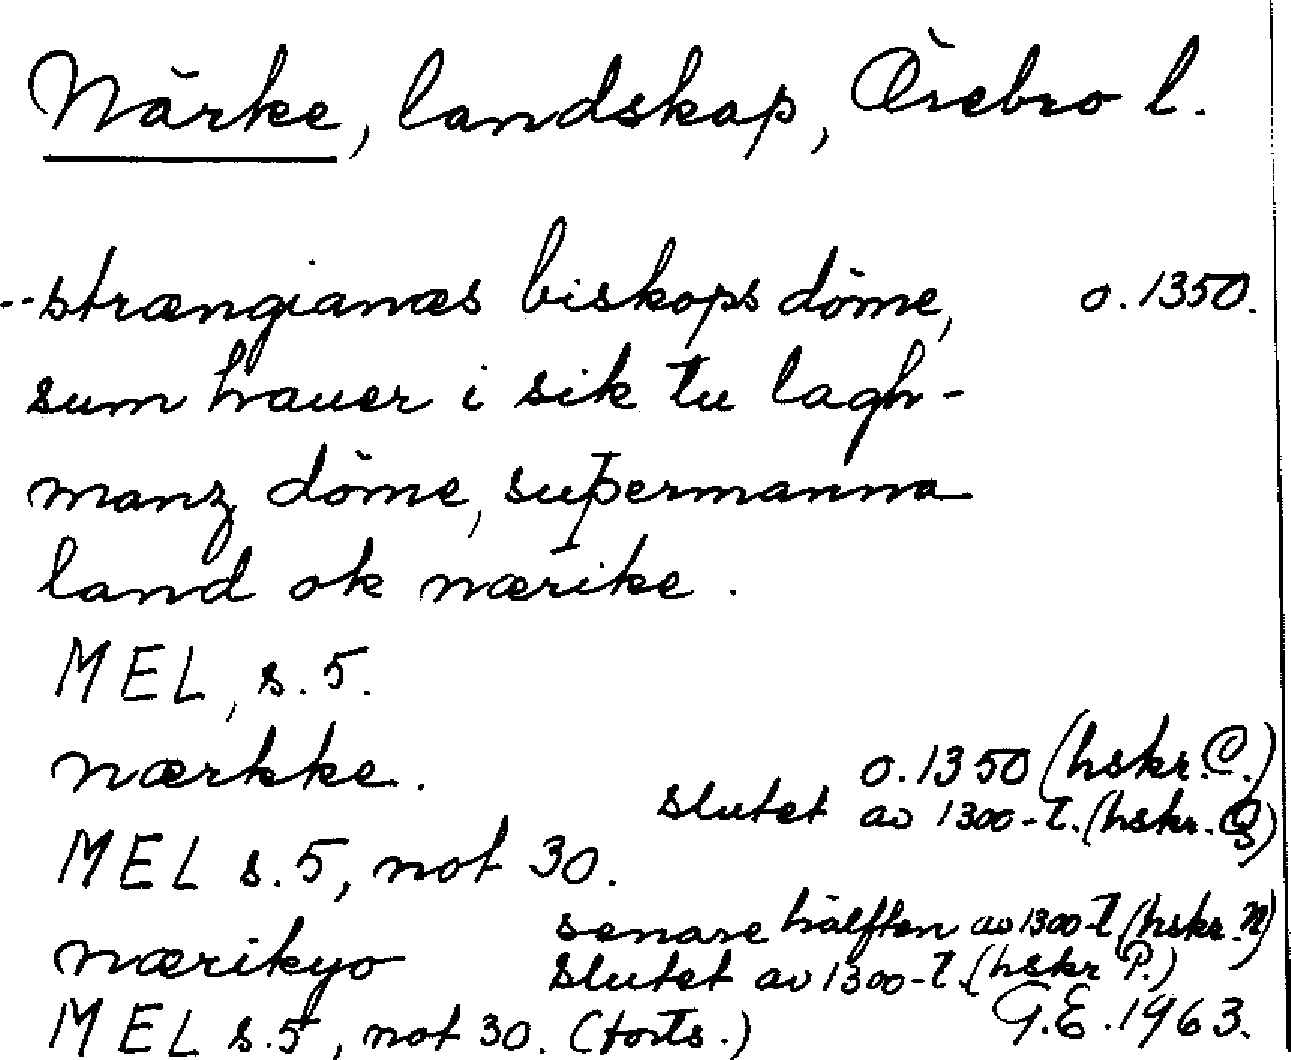 Närke, landskap, Örebro l.
--strængianæs biskops döme, o. 1350.
sum hauer i sik tu lagh-
manz döme, suþermanna
land ok nærike.
MEL, s. 5.
nærkke. o. 1350 (hskr. C.)
slutet av 1300-t. (hskr. Q)
MEL s. 5, not 30.
nærikyo senare hälften av 1300-t (hskr. N)
slutet av 1300-t. (hskr P.)
MEL s. 5, not 30. (forts.) G.E. 1963.